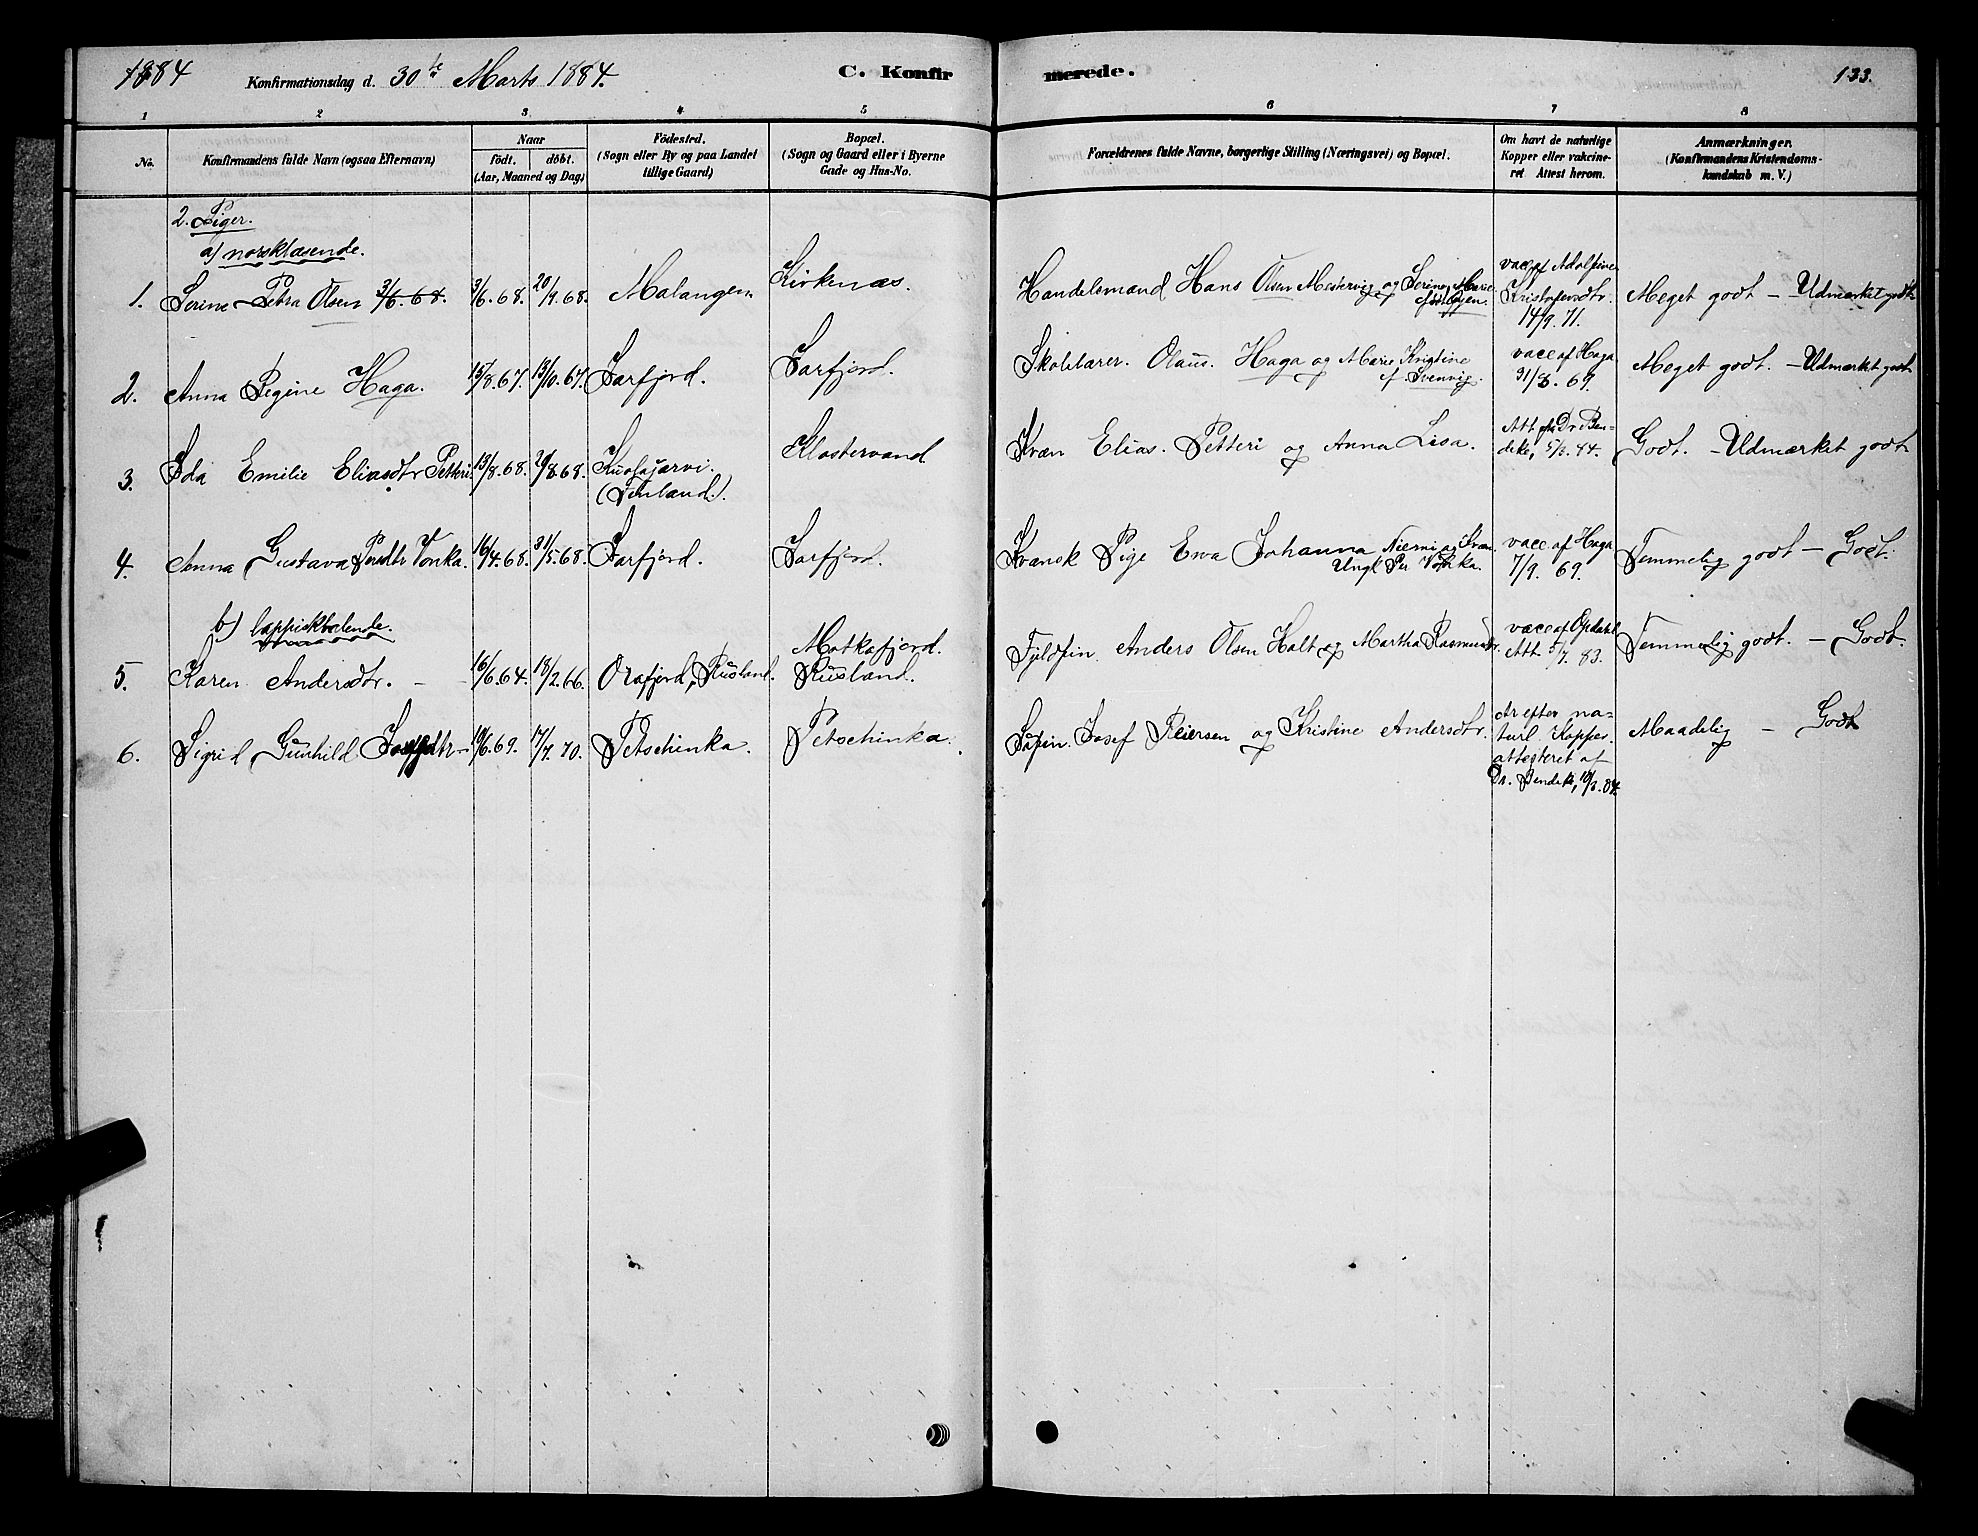 1884 Konfirmationsdag d. 30te Marts 1884. C. Konfirmerede. 133.
1 2 3 4 5 6 7 8
No. Konfirmandens fulde Navn (ogsaa Efternavn) Naar født. døbt. (Aar, Maaned og Dag) Födested. (Sogn eller By og paa Landet tillige Gaard) Bopæl. (Sogn og Gaard eller i Byerne Gade og Hus-No. Forældrenes fulde Navne, borgerlige Stilling (Næringsvei) og Bopæl. Om havt de naturlige Kopper eller vakcineret Attest herom. Anmærkninger. (Konfirmandens Kristendomskundskab m. V.)
2. Piger.
a) norsklæsende.
1. Serine Petra Olsen 3/6.68. 3/6.68. 20/9.68. Malangen. Kirkenæs. Handelsmand Hans Olsen Mestervig og Serine Marie født vacc af Adolfine Kristofersdtr. 14/9.71. Meget godt – Udmærket godt
2. Anna Regine Haga. 15/8.67. 13/10.67. Jarfjord. Jarfjord. Skolelærer. Olaus. Haga og Marie Kristine f. Svenvig. vacc af Haga 31/8.69. Meget godt. – Udmærket godt
3. Ida Emilie Eliasdtr Petteri. 13/8.68. 29/8.68. Kuolajarvi. (Finland.) Klostervand. Kvæn Elias. Petteri og Anna Lisa. Att fra Dr Bendeke, Godt. – Udmærket godt
4. Anna Gustava Persdtr Vonka. 16/4.68. 31/5.68. Jarfjord. Jarfjord. Kvænsk Pige Eva Johanna Niemi og Kvæn. Ungk. Per Vonka. vacc af Haga 7/9. 69. Temmelig godt – Godt.
b) lappisktalende.
5. Karen Andersdtr. – 16/6.64. 18/2.66. Orafjord, Rusland. Motkafjord. Rusland. Fjeldfin. Anders Olsen Holt og Martha Rasmusdtr. vacc af Opdahl Att. 5/7. 83. Temmelig godt. – Godt.
6. Sigrid Gunhild Josefsdtr – 19/6.69. 17/7.70. Petschinka. Petschinka. Søfin. Josef Reiersen og Kristine Andersdtr. Ar efter naturl Kopper. attesteret af Dr. Bendeke, 10/3.84. Maadelig – Godt